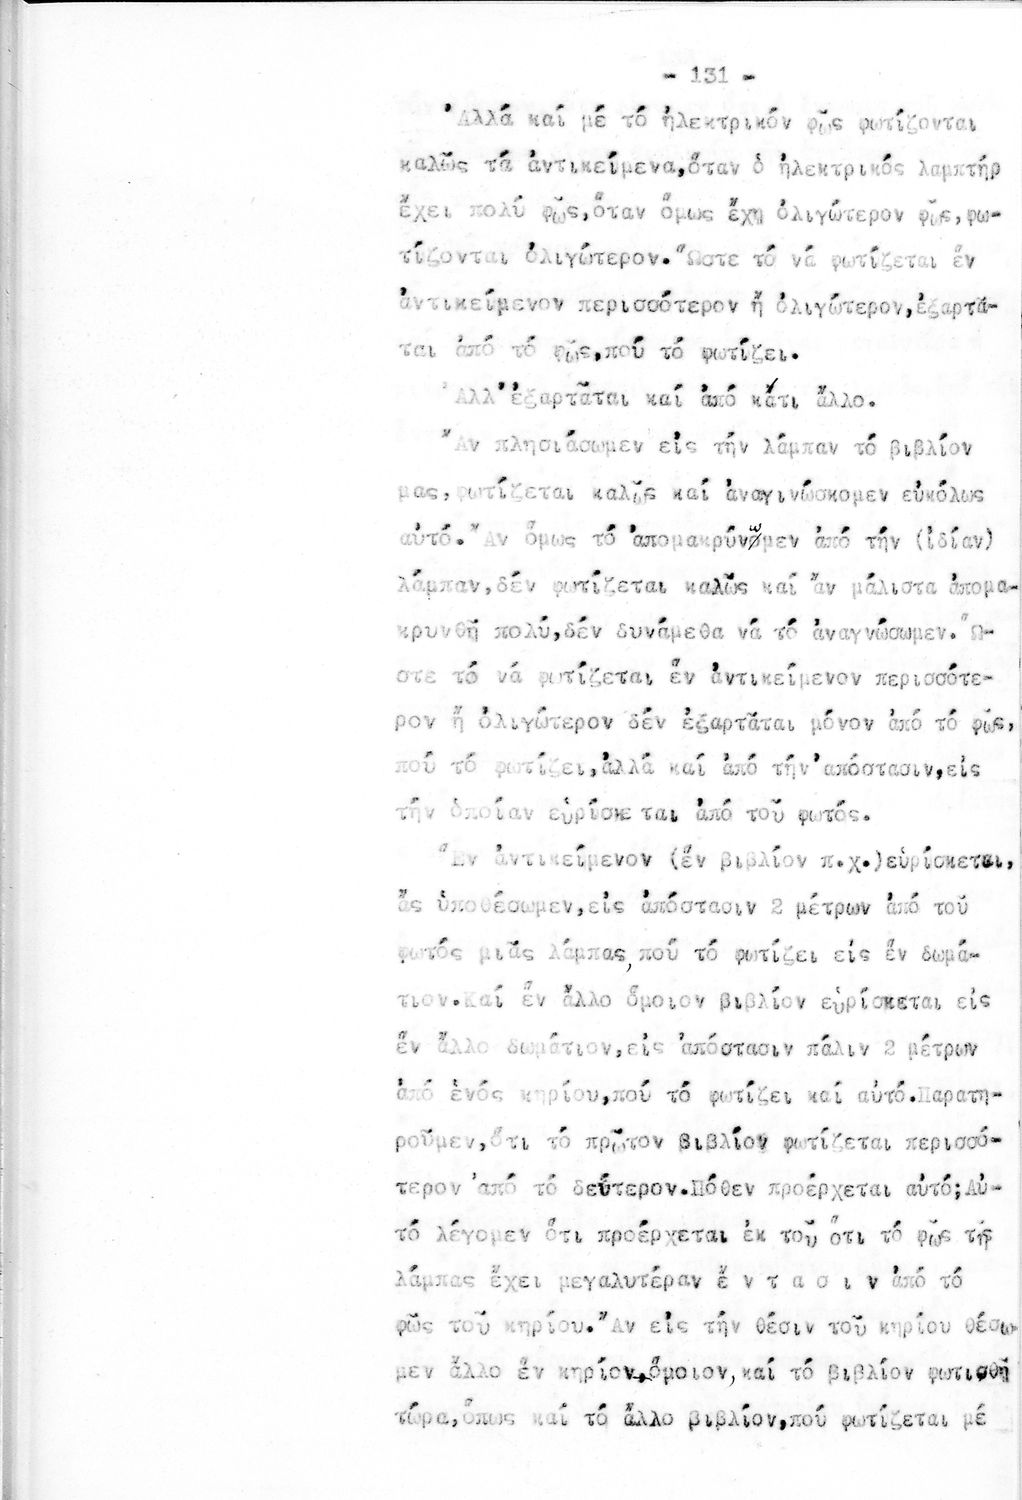 - 131 -
Ἀλλά καί μέ τό ἠλεκτρικόν φῶς φωτίζονται
καλῶς τά ἀντικείμενα,ὅταν ὁ ἠλεκτρικός λαμπτήρ
ἔχει πολύ φῶς,ὅταν ὅμως ἔχῃ ὀλιγώτερον φῶς,φω-
τίζονται ὀλιγώτερον.Ὥστε τό νά φωτίζεται ἕν
ἀντικείμενον περισσότερον ἤ ὀλιγώτερον,ἐξαρτᾶ-
ται ἀπό τό φῶς,πού τό φωτίζει.
Ἀλλ'ἐξαρτᾶται καί ἀπό κάτι ἄλλο.
Ἄν πλησιάσωμεν εἰς τήν λάμπαν τό βιβλίον
μας,φωτίζεται καλῶς καί ἀναγινώσκομεν εὐκόλως
αὐτό.Ἄν ὅμως τό ἀπομακρύνωμεν ἀπό τήν (ἰδίαν)
λάμπαν,δέν φωτίζεται καλῶς καί ἄν μάλιστα ἀπομα-
κρυνθῇ πολύ,δέν δυνάμεθα νά τό ἀναγνώσωμεν.Ὥ-
στε τό νά φωτίζεται ἕν ἀντικείμενον περισσότε-
ρον ἤ ὀλιγώτερον δέν ἐξαρτᾶται μόνον ἀπό τό φῶς,
πού τό φωτίζει,ἀλλά καί ἀπό τήν ἀπόστασιν,εἰς
τήν ὁποίαν εὑρίσκεται ἀπό τοῦ φωτός.
Ἕν ἀντικείμενον (ἕν βιβλίον π.χ.)εὑρίσκεται,
ἄς ὑποθέσωμεν,εἰς ἀπόστασιν 2 μέτρων ἀπό τοῦ
φωτός μιᾶς λάμπας, πού τό φωτίζει εἰς ἕν δωμά-
τιον.Καί ἕν ἄλλο ὅμοιον βιβλίον εὑρίσκεται εἰς
ἕν ἄλλο δωμάτιον,εἰς ἀπόστασιν πάλιν 2 μέτρων
ἀπό ἑνός κηρίου,πού τό φωτίζει καί αὐτό.Παρατη-
ροῦμεν,ὅτι τό πρῶτον βιβλίον φωτίζεται περισσό-
τερον ἀπό τό δεύτερον.Πόθεν προέρχεται αὐτό;Αὐ-
τό λέγομεν ὅτι προέρχεται ἐκ τοῦ ὅτι τό φῶς τῆς
λάμπας ἔχει μεγαλυτέραν ἔ ν τ α σ ι ν ἀπό τό
φῶς τοῦ κηρίου.Ἄν εἰς τήν θέσιν τοῦ κηρίου θέσω-
μεν ἄλλο ἕν κηρίον ὅμοιον, καί τό βιβλίον φωτισθῇ
τώρα,ὅπως καί τό ἄλλο βιβλίον,πού φωτίζεται μέ